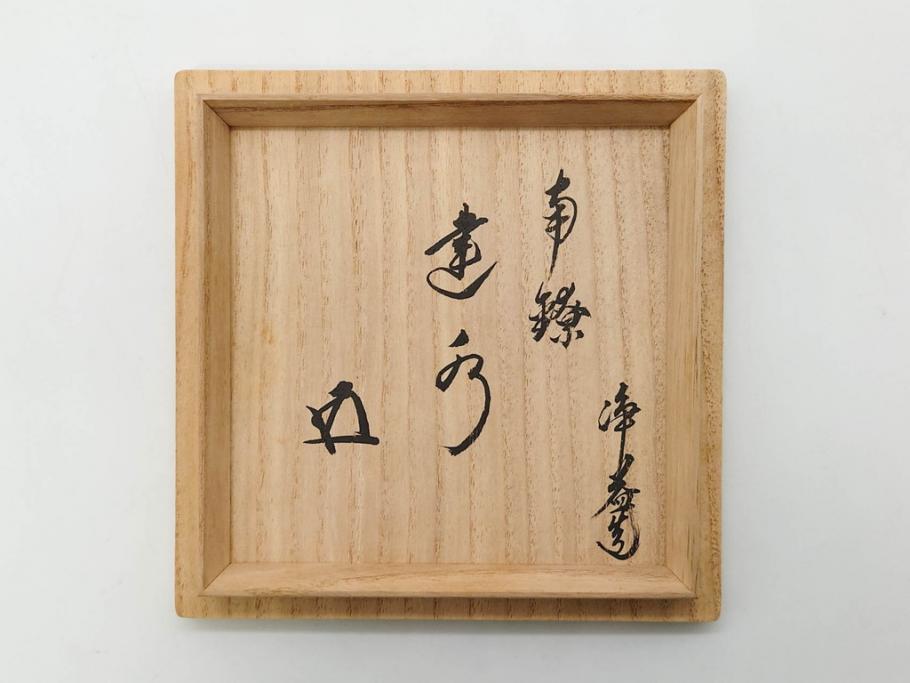 浄益造
南鐐
建水